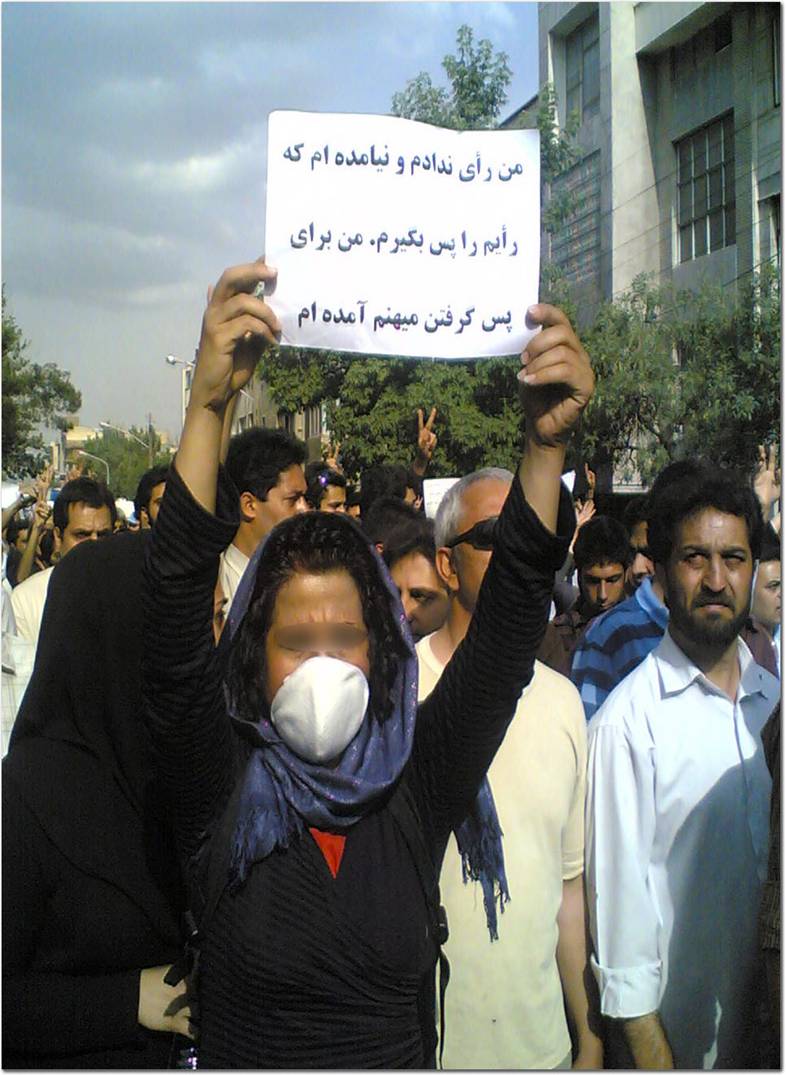 من رأی ندادم و نیامده ام که
رأیم را پس بگیرم. من برای
پس گرفتن میهنم آمده ام